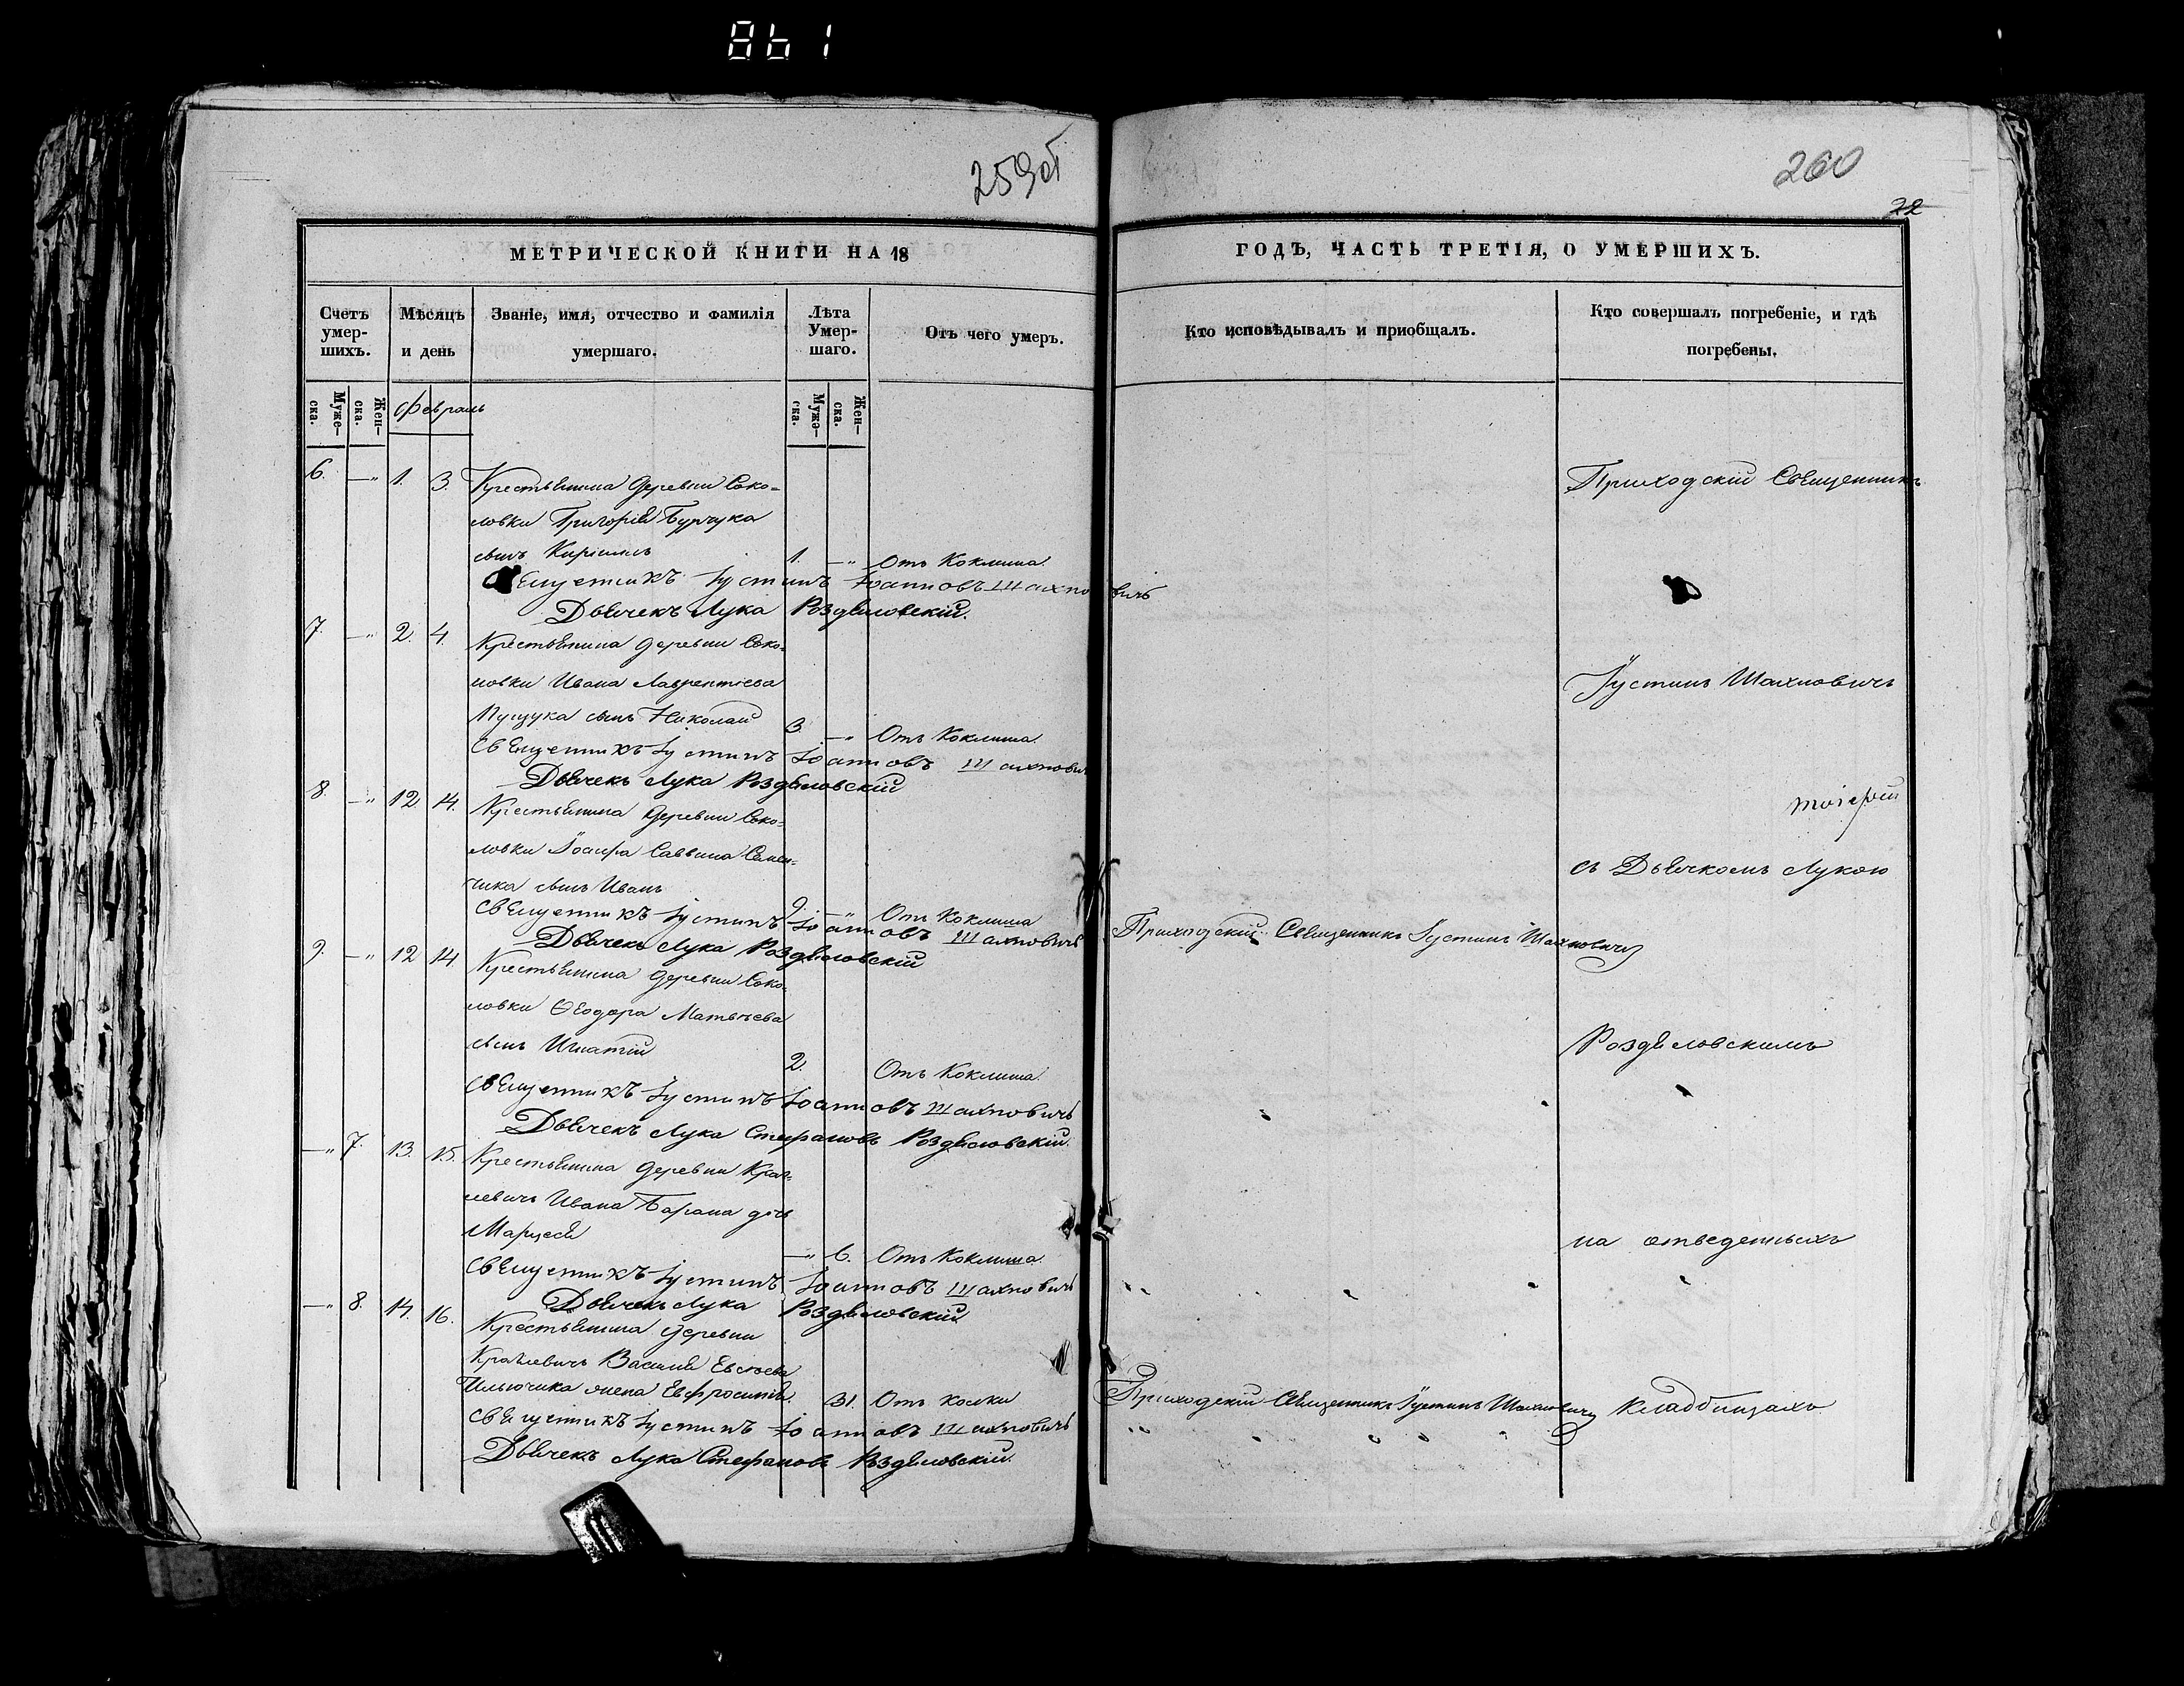 861
259об
260
22
МЕТРИЧЕСКОЙ КНИГИ НА 18
ГОДЪ, ЧАСТЬ ТРЕТІЯ, О УМЕРШИХЪ.
Счетъ умер-шихъ.
Мѣсяцъ и день
Званіе, имя, отчество и фамилія умершаго.
Лѣта Умер-шаго.
Отъ чего умеръ.
Кто исповѣдывалъ и пріобщалъ.
Кто совершалъ погребеніе, и гдѣ погребены.
Муже-ска.
Жен-ска.
Февраль
Муже-ска.
Жен-ска.
6. —„ 1. 3. Крестьянина деревни Соко-
ловки Григорія Бурчука
сынъ Кириллъ 1. —„ Отъ Коклюша
Священникъ Іустинъ Іоанновъ Шахновичъ
Дьячекъ Лука Роздяловскій.
7. —„ 2. 4. Крестьянина деревни Соко-
ловки Ивана Лаврентіева
сынъ Николай 3. —„ Отъ Коклюша.
Священникъ Іустинъ Іоанновъ Шахнович
Дьячекъ Лука Роздяловскій
8. —„ 12 14. Крестьянина деревни Соко-
ловки Іосифа Саввина
чика сынъ Иванъ 9. —„ Отъ Коклюша
Священникъ Іустинъ Іоанновъ Шахновичъ
Дьячекъ Лука Роздяловскій
9. —„ 12 14 Крестьянина деревни Соко-
ловки Ѳеодора Матвѣева
сынъ Игнатій 2. Отъ Коклюша.
Священникъ Іустинъ Іоанновъ Шахновичъ
Дьячекъ Лука Стефановъ Роздяловскій.
—„ 7. 13. 15. Крестьянина деревни Кра-
левичъ Ивана Барана дочь
—„ 6. Отъ Коклюша.
Священникъ Іустинъ Іоанновъ Шахновичъ
Дьячекъ Лука Роздяловскій
—„ 8. 14. 16. Крестьянина деревни
Кралевичъ Василія
жена Евфросинія. 31. Отъ колки
Священникъ Іустинъ Іоанновъ Шахновичъ
Дьячекъ Лука Стефановъ Роздяловскій.
Приходскій Священникъ Іустинъ Шахновичъ
Приходскій Священникъ Іустинъ Шахновичъ
Приходскій Священникъ
Іустинъ Шахновичъ
съ Дьячкомъ Лукою
Роздяловскимъ
на отведенныхъ
кладбищахъ